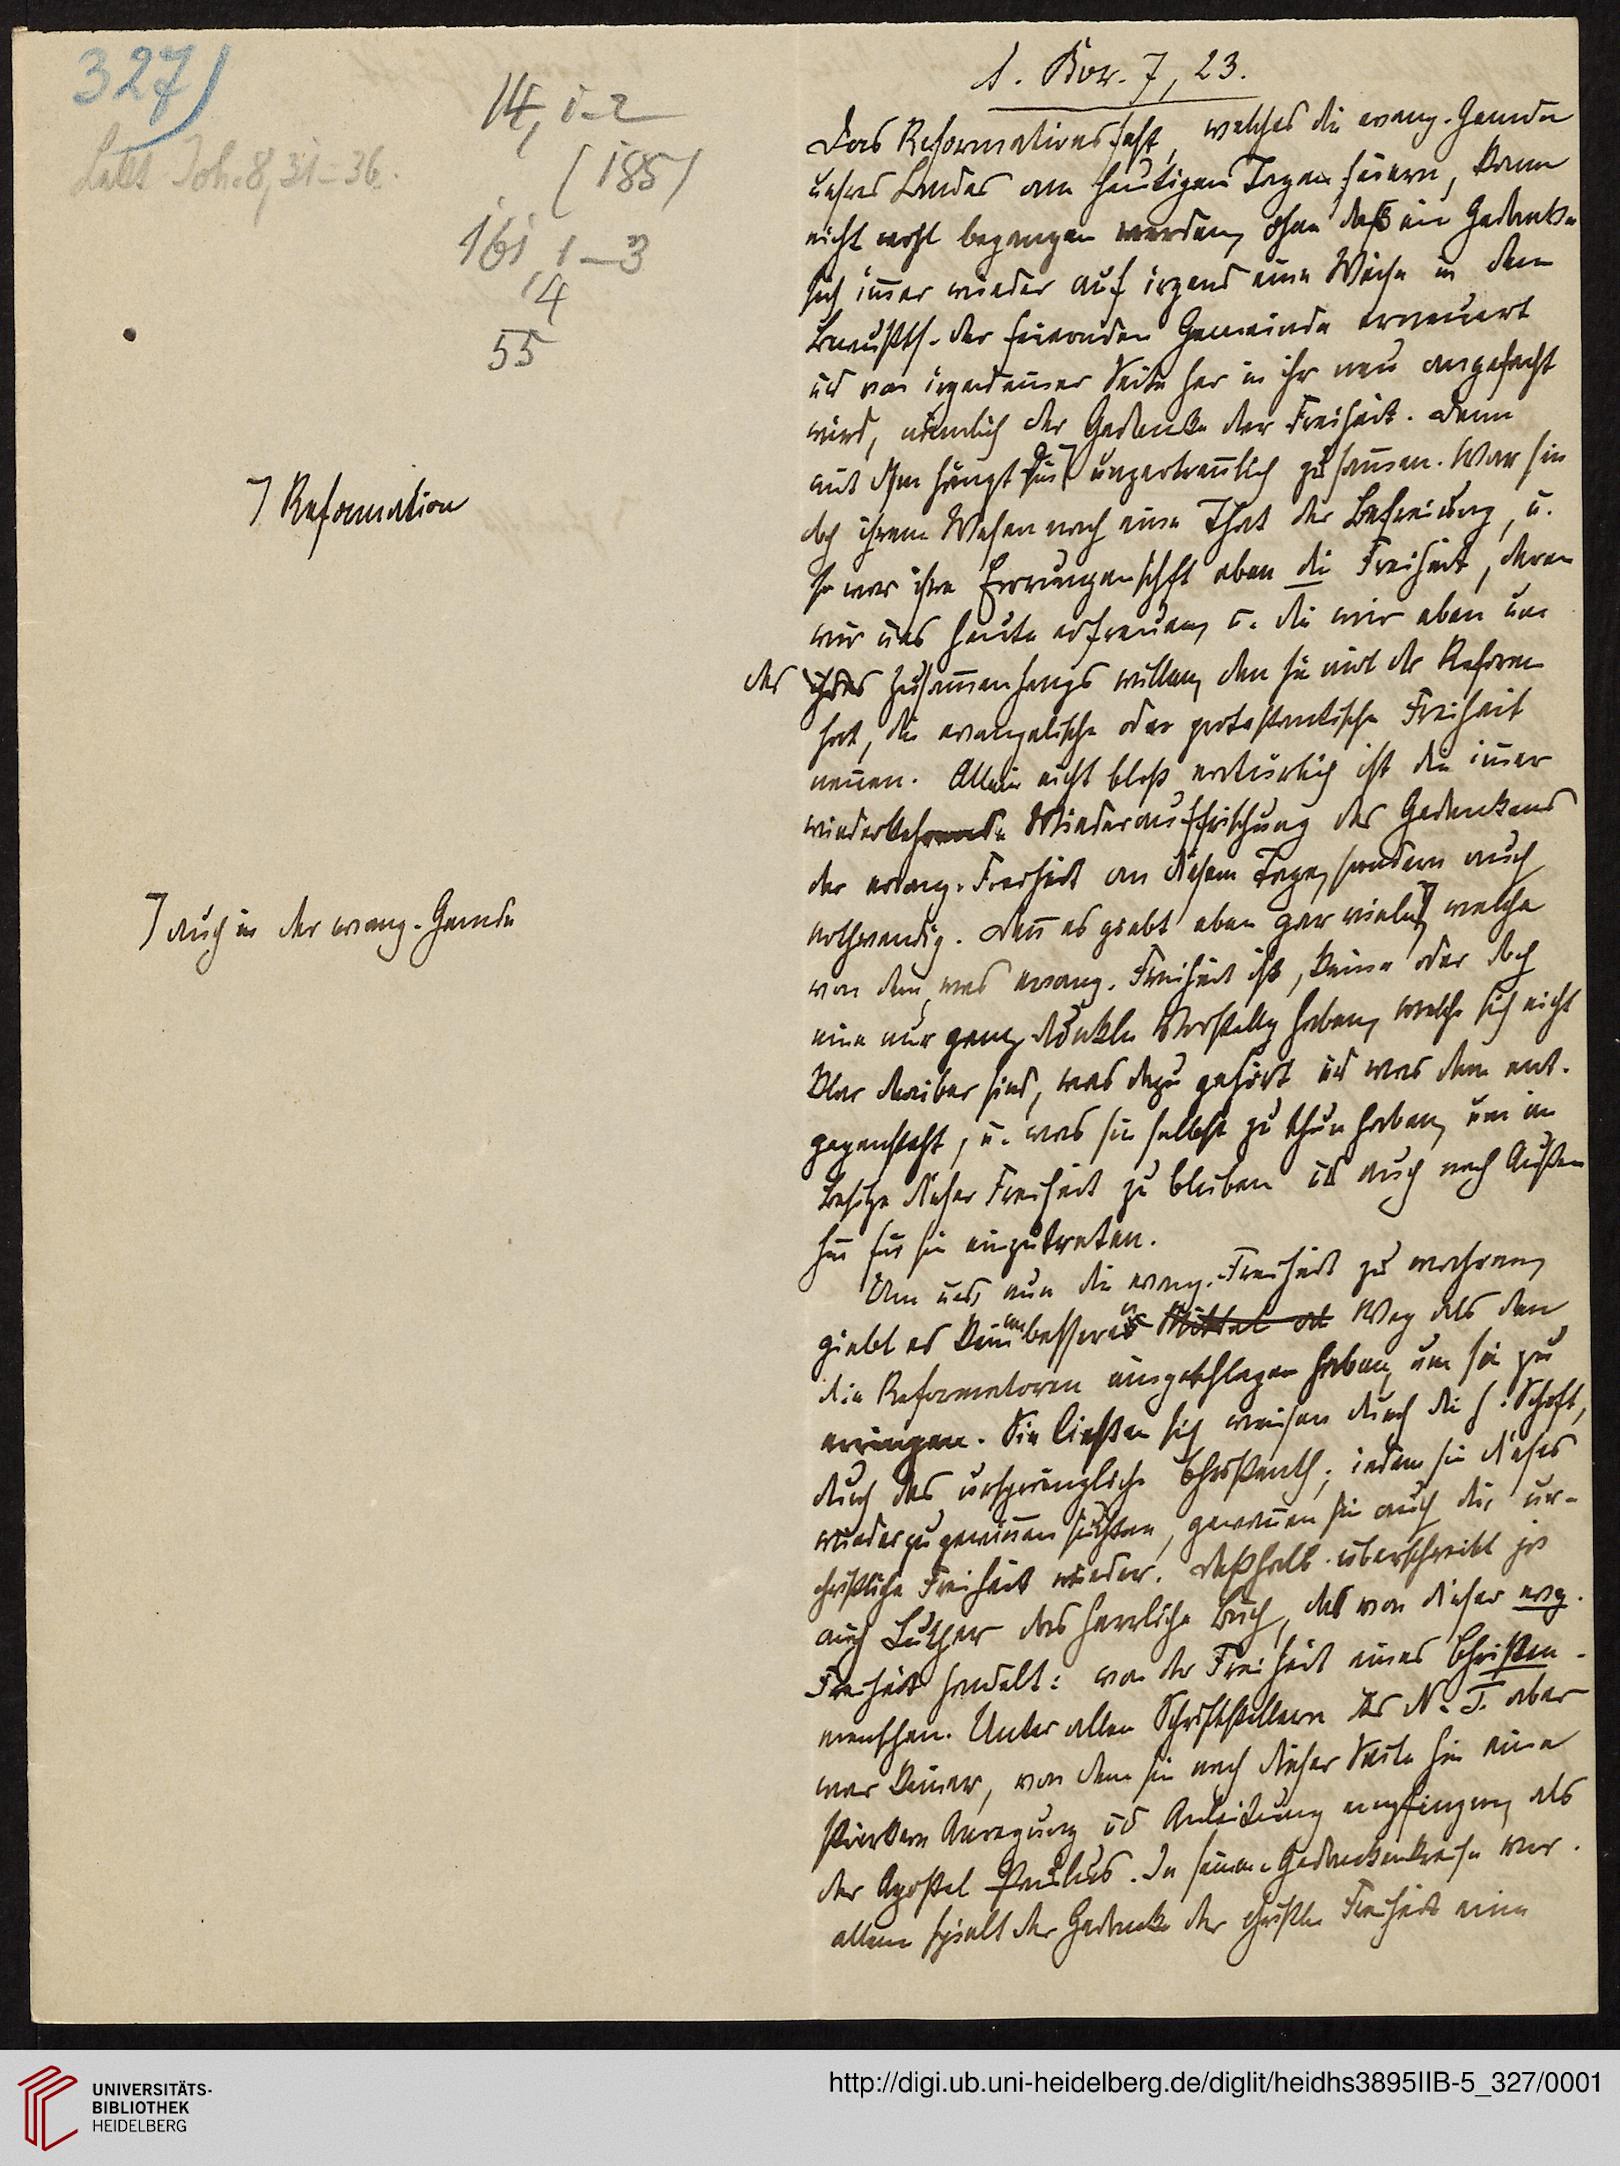 327)
Lect Joh. 8, 31-36.
14, 1-2
(185)
161, 1-3
14
55
1. Kor. 7, 23.
Das Reformationsfest, welches die evang. Gemeinde
unsres Landes am heutigen Tage feiern, kann
nicht wohl begangen werden, ohne daß ein Gedanke
sich immer wieder auf irgend eine Weise in dem
Bewußts. der feiernden Gemeinde erneuert
und von irgendeiner Seite her in ihr neu angefacht
wird, nämlich der Gedanke der Freiheit. Denn
mit ihm hängt die ⁊ unzertrennlich zusammen. War sie
⁊ Reformation
doch ihrem Wesen nach eine That der Befreiung, u.
so war ihre Errungenschaft eben die Freiheit, deren
wir uns heute erfreuen, u. die wir eben um
des ihres Zusammenhangs willen, den sie mit der Reform.
hat, die evangelische oder protestantische Freiheit
nennen. Allein nicht bloß natürlich ist die immer
wiederkehrende Wiederauffrischung des Gedankens
der evang. Freiheit an diesem Tage, sondern auch
nothwendig. Denn es giebt eben gar viele ⁊, welche
⁊ auch in der evang. Gemeinde
von dem, was evang. Freiheit ist, keine oder doch
eine nur ganz dunkle Vorstellung haben, welche sich nicht
klar darüber sind, was dazu gehört und was dem ent-
gegensteht, u. was sie selbst zu thun haben, um im
Besitze dieser Freiheit zu bleiben und auch nach Außen
hin für sie einzutreten.
Um uns nun die evang. Freiheit zu wahren,
giebt es keinen besseren Mittel od. Weg als den
die Reformatoren eingeschlagen haben, um sie zu
erringen. Sie ließen sich weisen durch die h. Schrift,
durch das ursprüngliche Christenth.; indem sie dieses
wiederzugewinnen suchten, gewannen sie auch die ur-
christliche Freiheit wieder. Deßhalb überschreibt ja
auch Luther das herrliche Buch, das von dieser evg.
Freiheit handelt: von der Freiheit eines Christen-
menschen. Unter allen Schriftstellern des N. T. aber
war keiner, von dem sie nach dieser Seite hin eine
stärkere Anregung und Anleitung empfingen, als
der Apostel Paulus. In seinem Gedankenkreise vor
allem spielt der Gedanke der christl. Freiheit eine
UNIVERSITÄTS-
BIBLIOTHEK
HEIDELBERG
http://digi.ub.uni-heidelberg.de/diglit/heidhs3895IIB-5_327/0001